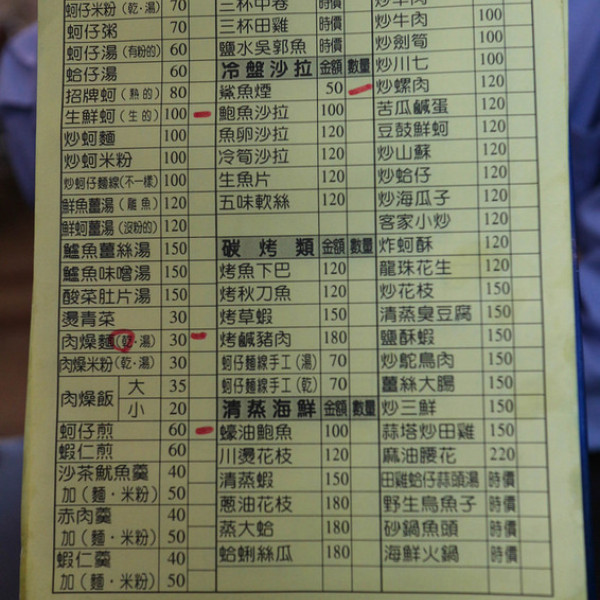 蚵仔米粉(乾·湯) 70
蚵仔粥 70
蚵仔湯(有粉的) 60
蛤仔湯 60
招牌蚵(熟的) 80
生鮮蚵(生的) 100
炒蚵麵 100
炒蚵米粉 100
炒蚵仔麵線(不一樣) 100
鮮魚薑湯(雕魚) 120
鮮蚵薑湯(沒粉的) 120
鱸魚薑絲湯 150
鱸魚味噌湯 150
酸菜肚片湯 150
燙青菜 30
肉燥麵(乾·湯) 30
肉燥米粉(乾·湯) 30
肉燥飯 大 35
小 20
蚵仔煎 60
蝦仁煎 60
沙茶魷魚羹 40
加(麵·米粉) 50
赤肉羹 40
加(麵·米粉) 50
蝦仁羹 40
加(麵·米粉) 50
三杯中卷 時價
三杯田雞 時價
鹽水吳郭魚 時價
冷盤沙拉 金額 數量
鯊魚煙 50
鮑魚沙拉 100
魚卵沙拉 120
冷筍沙拉 120
生魚片 120
五味軟絲 120
碳烤類 金額 數量
烤魚下巴 120
烤秋刀魚 120
烤草蝦 150
烤鹹豬肉 180
蚵仔麵線手工(湯) 70
蚵仔麵線手工(乾) 70
清蒸海鮮 金額 數量
蠔油鮑魚 100
川燙花枝 120
清蒸蝦 150
蔥油花枝 180
蒸大蛤 180
蛤蜊絲瓜 180
炒牛肉 100
炒劍筍 100
炒川七 100
炒螺肉 120
苦瓜鹹蛋 120
豆鼓鮮蚵 120
炒山蘇 120
炒蛤仔 120
炒海瓜子 120
客家小炒 120
炸蚵酥 120
龍珠花生 120
炒花枝 150
清蒸臭豆腐 150
鹽酥蝦 150
炒鴕鳥肉 150
薑絲大腸 150
炒三鮮 150
蒜塔炒田雞 150
麻油腰花 220
田雞蛤仔蒜頭湯 時價
野生烏魚子 時價
砂鍋魚頭 時價
海鮮火鍋 時價